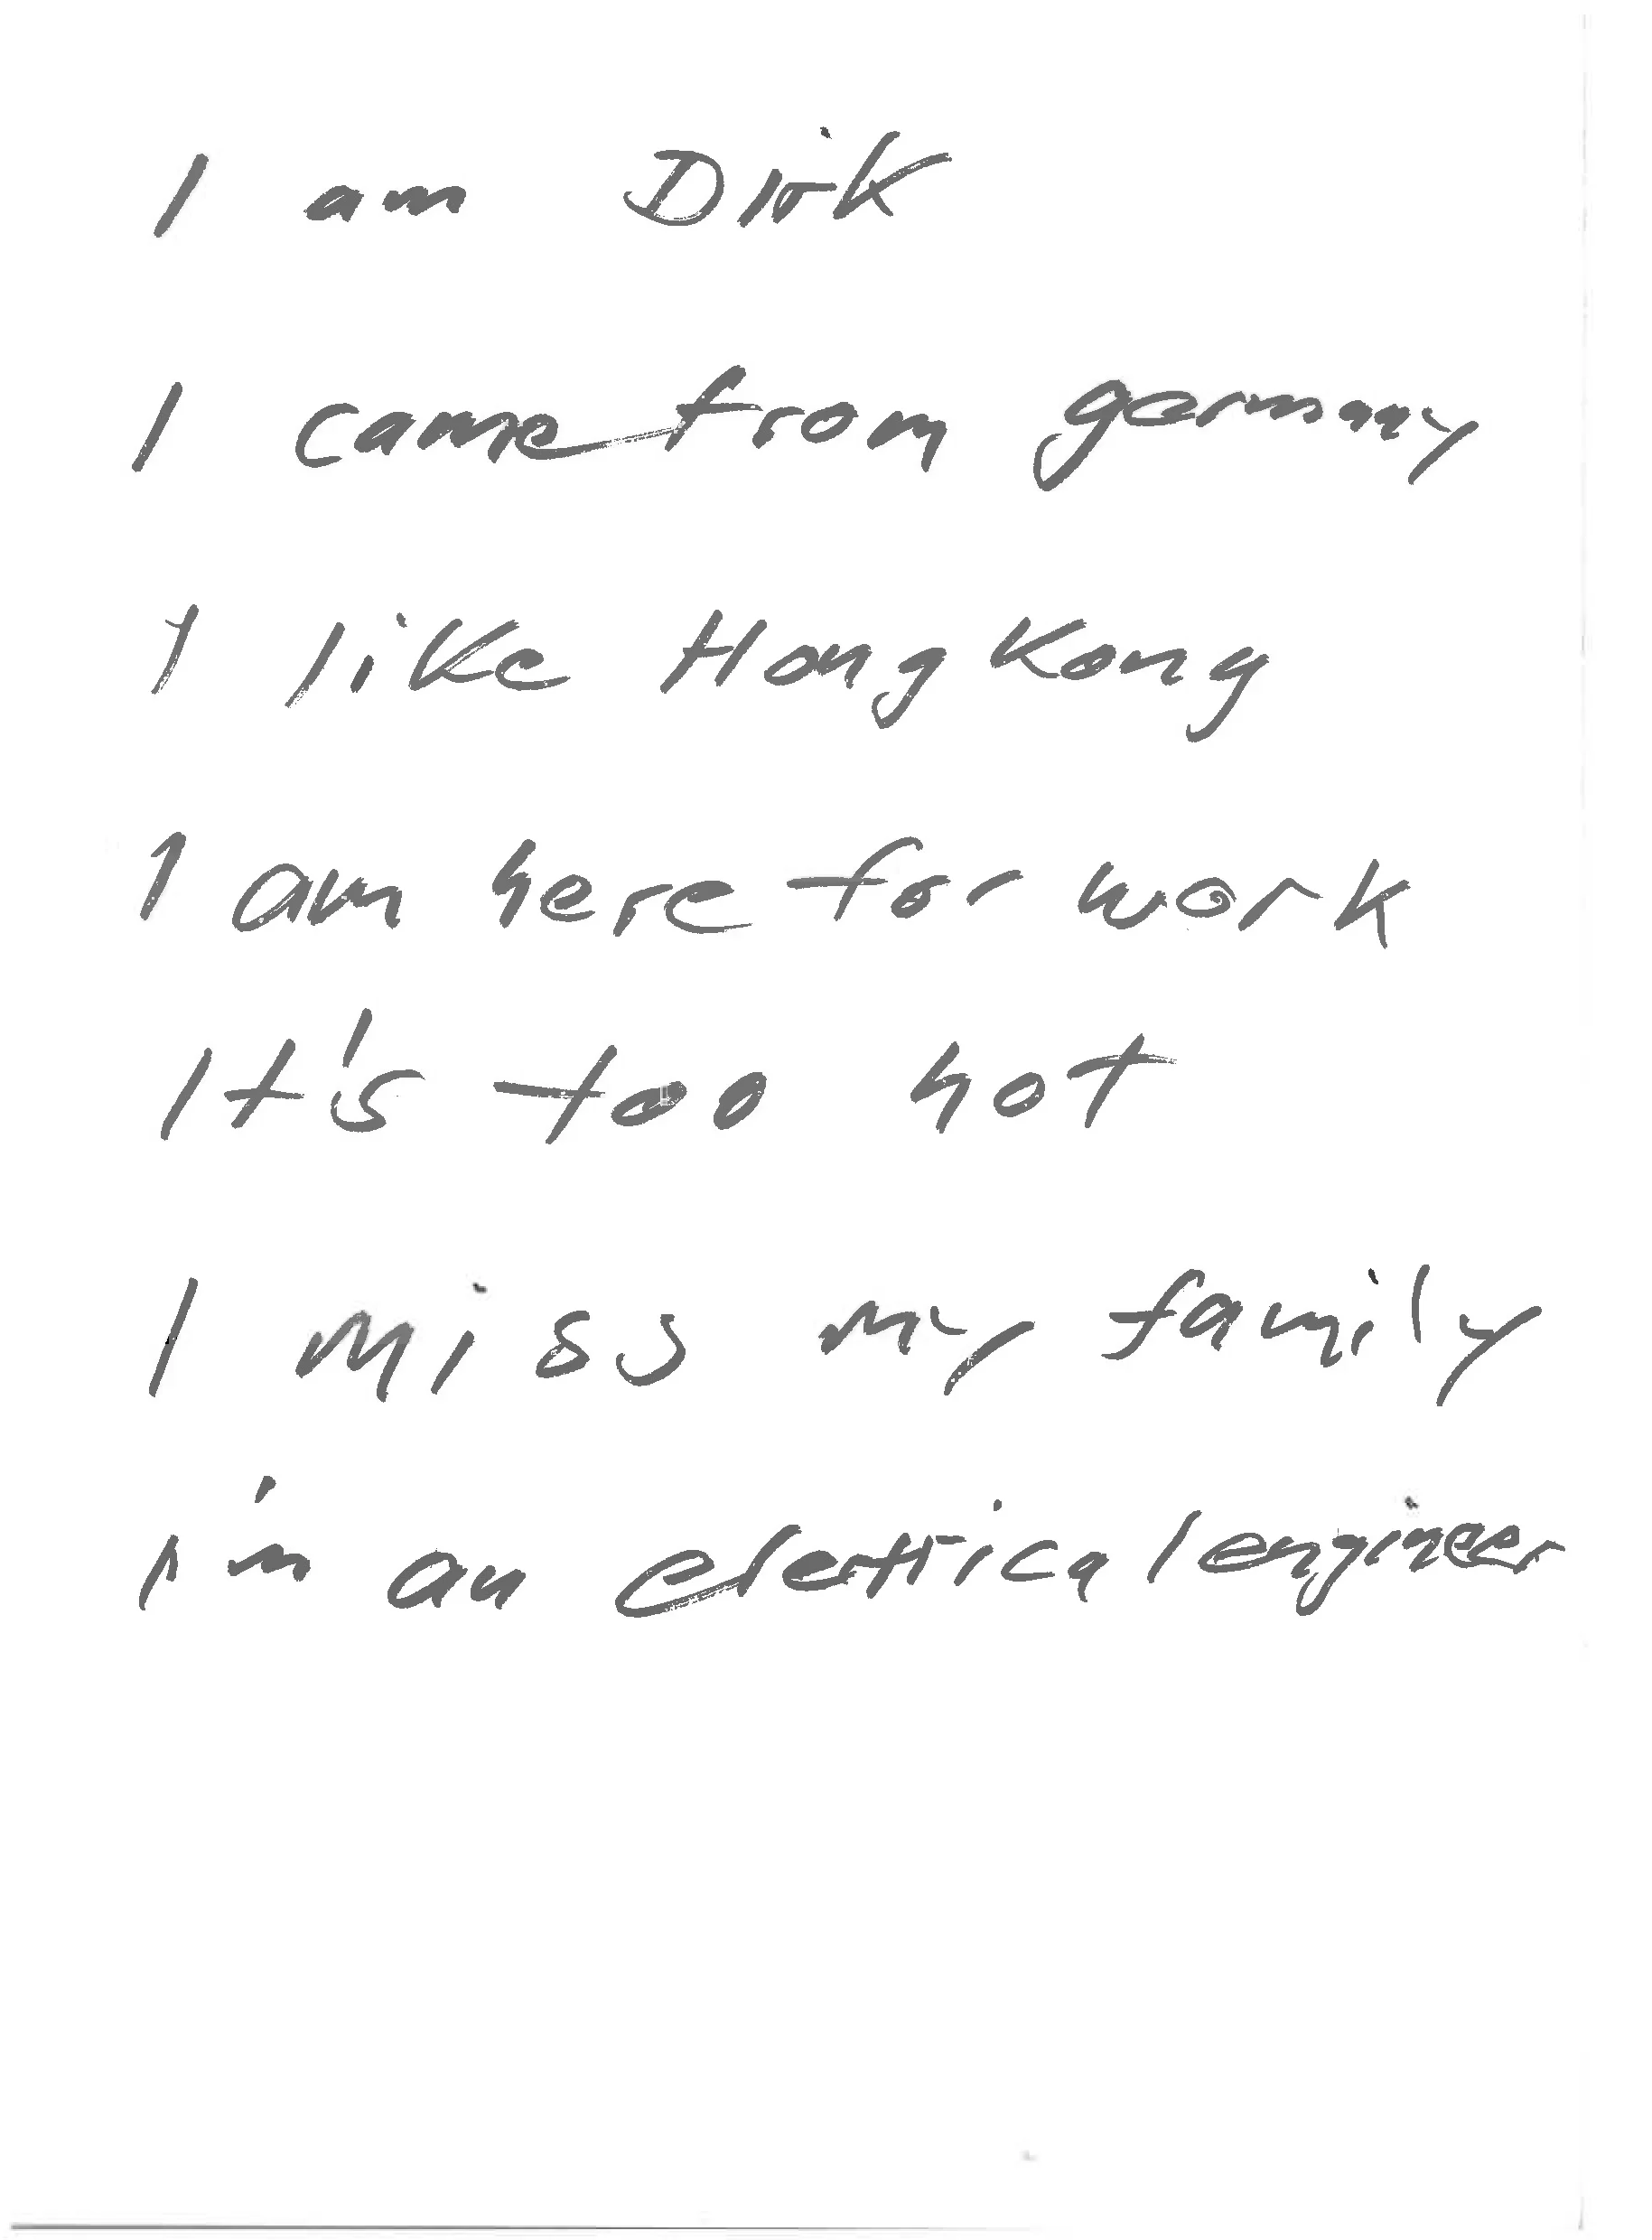 I am Dirk
I came from germany
I like Hong Kong
I am here for work
It's too hot
I miss my family
I'm an electrical engineer